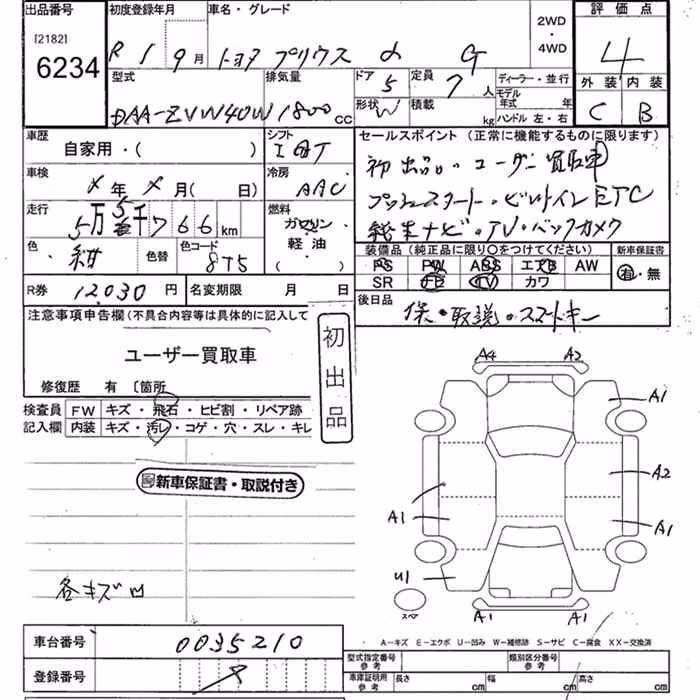 出品番号 初度登録年月 車名・グレード 2WD ・ 4WD 評価点
[2182]
6234 R 1 9月 トヨタ プリウス α G 4
型式 排気量 ドア 5 定員 7人 ディーラー・並行 外装 内装
モデル年式 年
DAA-ZVW40W 1800cc 形状 W 積載 kg ハンドル 左・右 C B
車歴 シフト セールスポイント(正常に機能するものに限ります)
自家用・( ) 初出品。ユーザー買取車
車検 冷房 プッシュスタート・ビルトインETC
X年X月( 日) AAC 純正ナビ・TV・バックカメラ
走行 5万5千766km 燃料 ガソリン
軽油
( )
色 紺 色替 色コード 8T5
装備品(純正品に限り○をつけてください) 新車保証書
PS PW ABS エアB AW 有・無
SR TV カワ
R券 12,030円 名変期限 月 日 後日品 保・取説。スマートキー
注意事項申告欄(不具合内容等は具体的に記入して
ユーザー買取車
初出品
修復歴 有 〔箇所
検査員 FW キズ・飛石・ヒビ割・リペア跡
記入欄 内装 キズ・汚レ・コゲ・穴・スレ・キレ
新車保証書・取説付き
A4 A2
A1
A2
A1 A1
U1
スペア
A1 A1
各キズ凹
A-キズ E-エクボ U-凹み W-補修跡 S-サビ C-腐食 XX-交換済
車台番号 0035210
型式指定番号 参考 類別区分番号 参考
登録番号
車庫証明用 参考 長さ cm 幅 cm 高さ cm